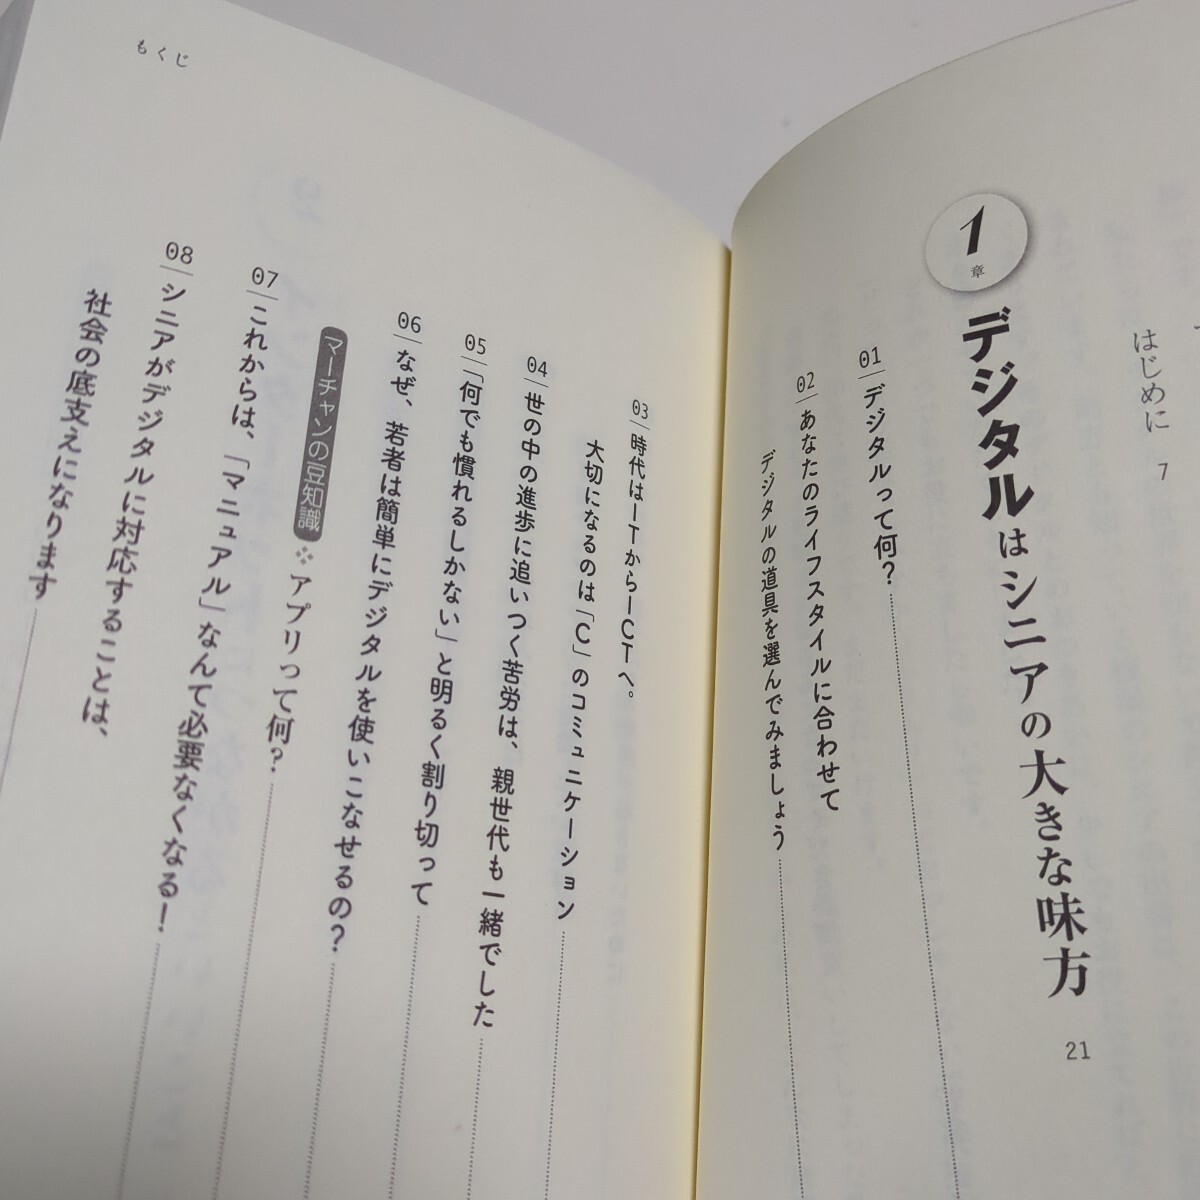 はじめに 7
1章 デジタルはシニアの大きな味方 21
01 デジタルって何?
02 あなたのライフスタイルに合わせて
デジタルの道具を選んでみましょう
03 時代はITからICTへ。
大切になるのは「C」のコミュニケーション
04 世の中の進歩に追いつく苦労は、親世代も一緒でした
05 「何でも慣れるしかない」と明るく割り切って
06 なぜ、若者は簡単にデジタルを使いこなせるの?
マーチャンの豆知識 ❖ アプリって何?
07 これからは、「マニュアル」なんて必要なくなる!
08 シニアがデジタルに対応することは、
社会の底支えになります
もくじ